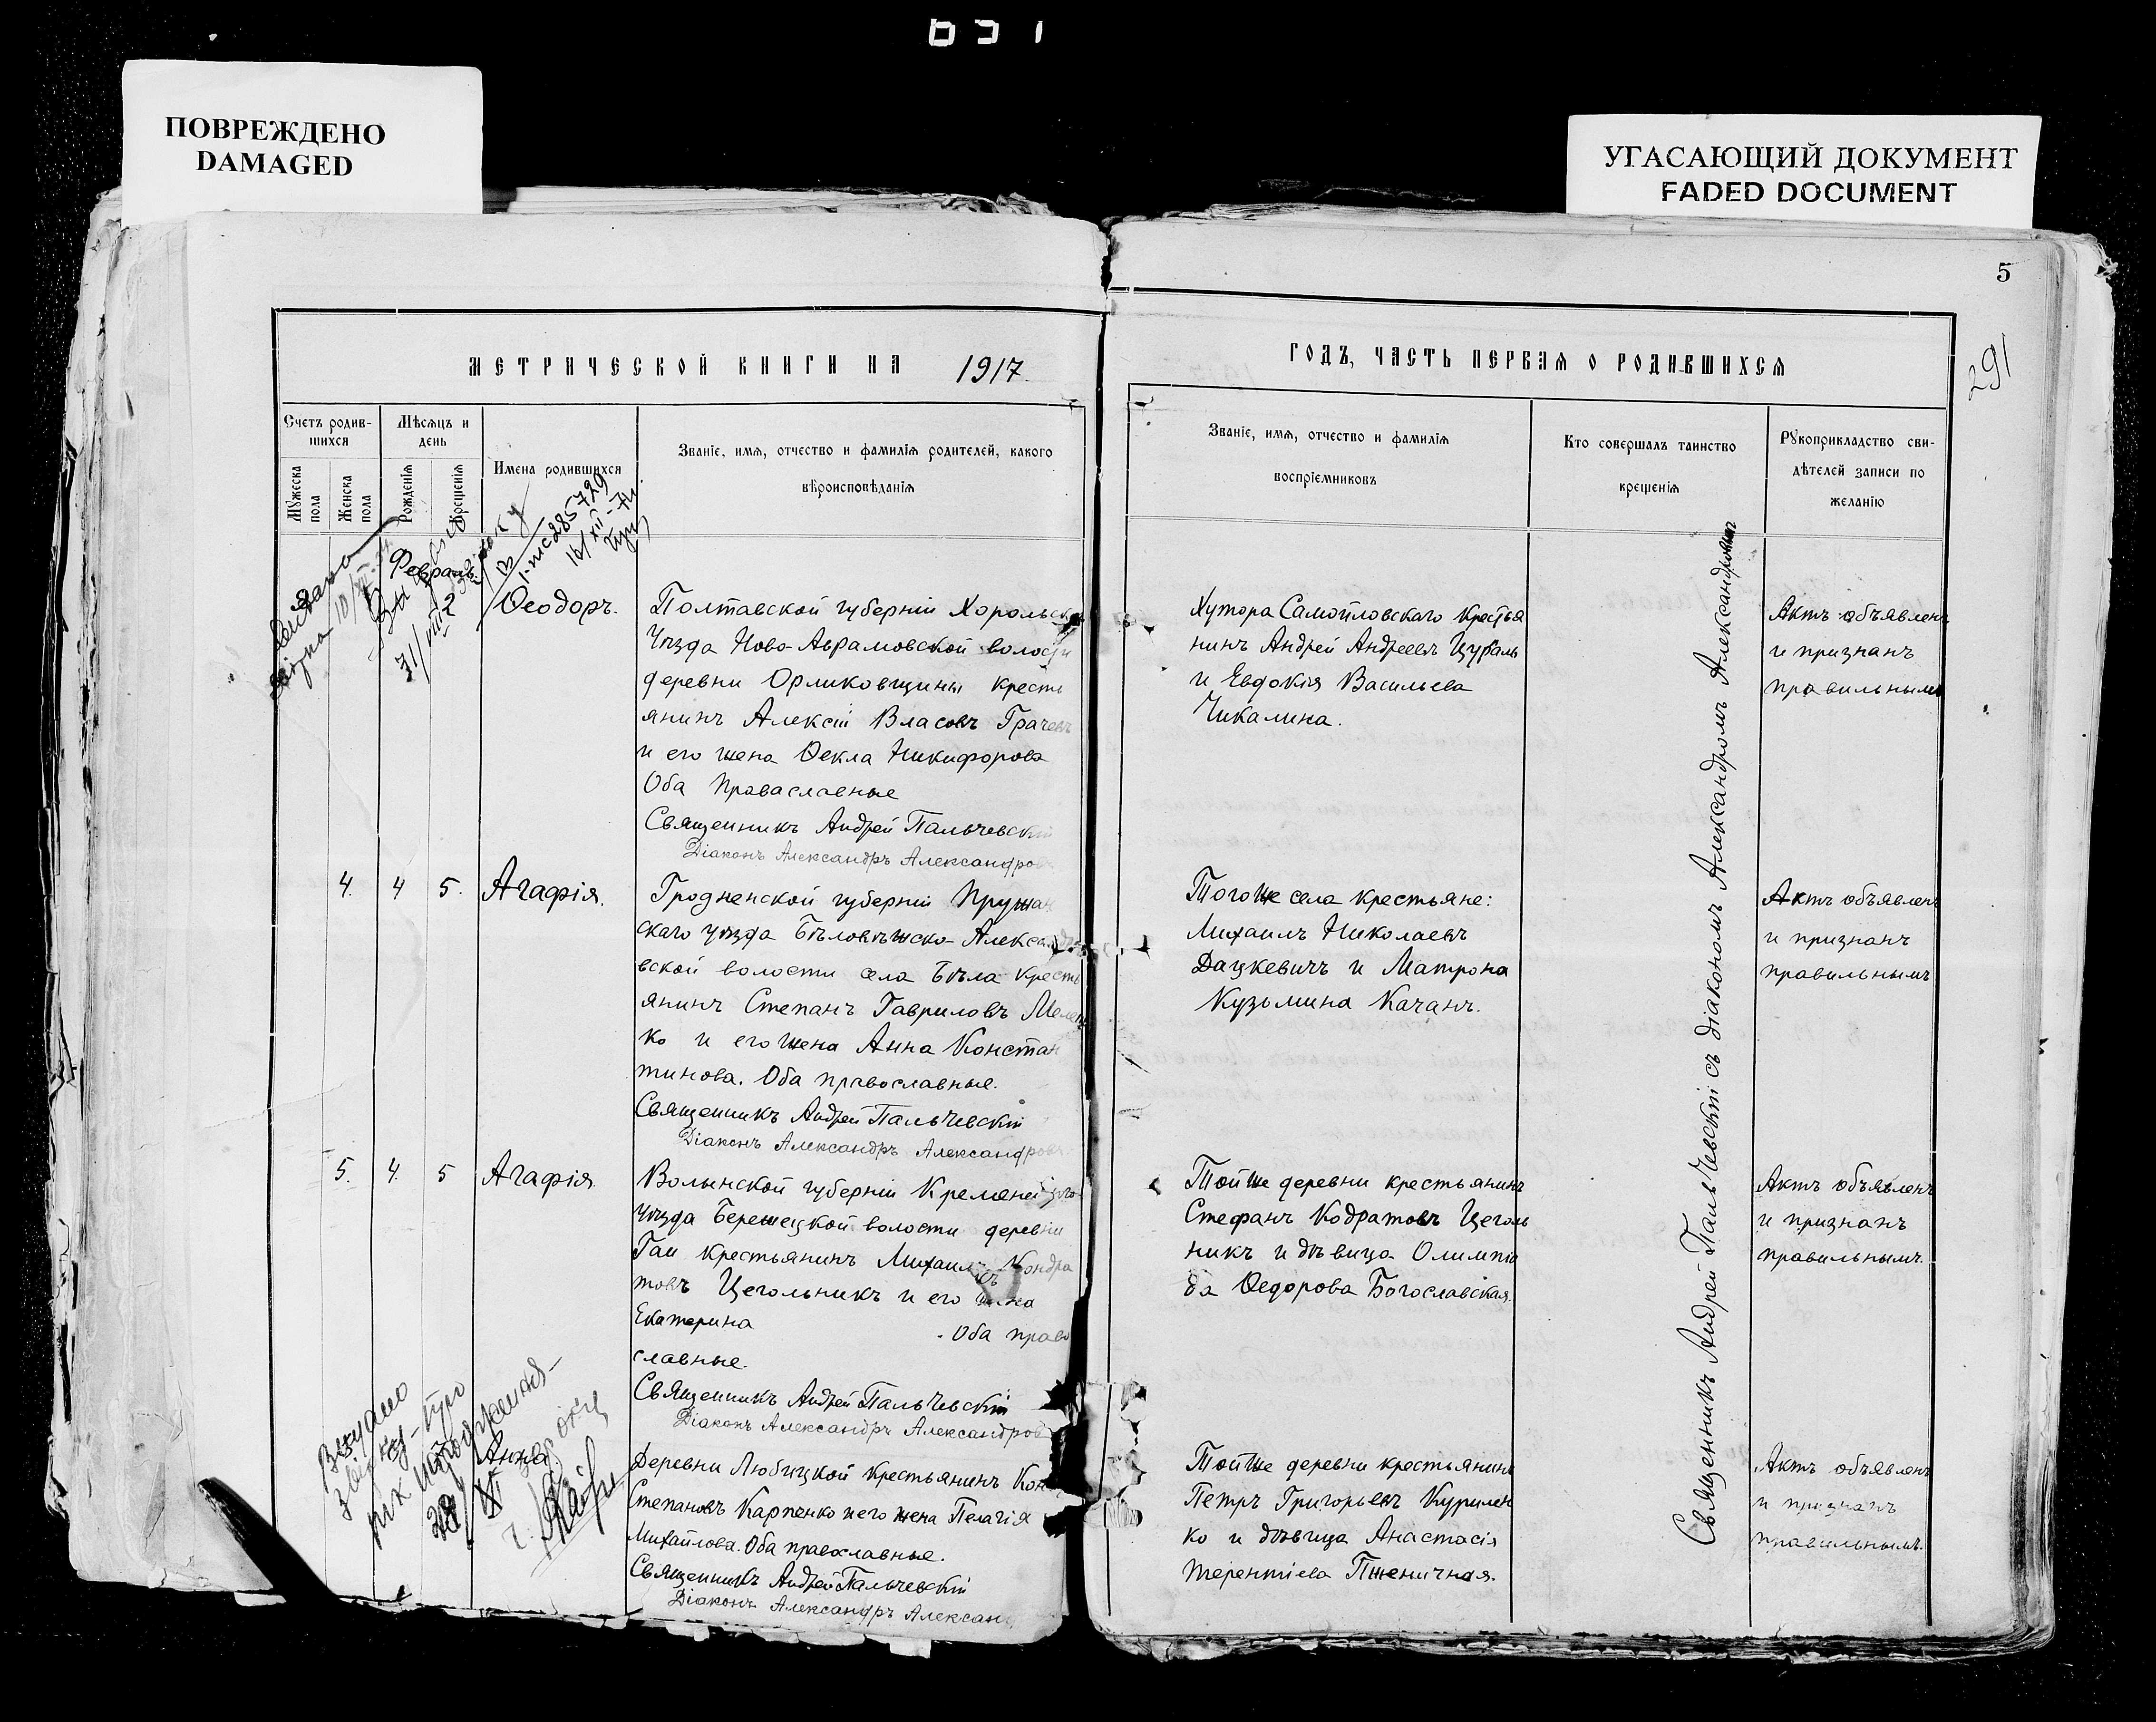 ПОВРЕЖДЕНО
DAMAGED
УГАСАЮЩИЙ ДОКУМЕНТ
FADED DOCUMENT
5
291
МЕТРИЧЕСКОЙ КНИГИ НА 1917
ГОДЪ, ЧАСТЬ ПЕРВАЯ О РОДИВШИХСЯ
Счетъ родив-
шихся
Мужеска
пола
Женска
пола
Мѣсяцъ и
день
Рожденія
Крещенія
Имена родившихся
Званіе, имя, отчество и фамилія родителей, какого
вѣроисповѣданія
Званіе, имя, отчество и фамилія
воспріемниковъ
Кто совершалъ таинство
крещенія
Рукоприкладство сви-
дѣтелей записи по
желанію
Февраль
2
Ѳеодоръ.
Полтавской губерніи Хорольска
Уѣзда Ново-Аврамовской волости
деревни Орликовщины кресть
янинъ Алексій Власовъ Грачевъ
и его жена Ѳекла Никифорова
Оба Праваславные
Священникъ Андрей Пальчевскій
Діаконъ Александръ Александров
Хутора Самойловскаго крестья
нинъ Андрей Андреевъ Цубаль
и Евдокія Васильева
Чикалина.
Актъ объявленъ
и признанъ
правильнымъ
4. 4 5. Агафія.
Гродненской губерніи Пружан
скаго уѣзда Бѣловѣжско-Александро
вской волости села Бѣла кресть
янинъ Степанъ Гавриловъ Мелеш
ко и его жена Анна Констан
тинова. Оба православные.
Священникъ Андрей Пальчевскій
Діаконъ Александръ Александровъ
Того же села крестьяне:
Михаилъ Николаевъ
Дацкевичъ и Матрона
Кузьмина Качанъ.
Актъ объявленъ
и признанъ
правильнымъ
5. 4. 5 Агафія
Волынской губерніи Кременецкаго
Уѣзда Бережецкой волости деревни
Гаи крестьянинъ Михаилъ Кондра
товъ Цегольникъ и его жена
Екатерина . Оба право
славные.
Священникъ Андрей Пальчевскій
Діаконъ Александръ Александров
Той же деревни крестьянинъ
Стефанъ Кодратовъ Цеголь
никъ и дѣвица Олимпіа
да Ѳедорова Богославская.
Актъ объявленъ
и признанъ
правильнымъ.
Анна
Деревни Любицкой крестьянинъ Кон
Степановъ Карпенко и его жена Пелагія
Михайлова. Оба православные.
Священникъ Андрей Пальчевскій
Діаконъ Александръ Алексан
Той же деревни крестьянинъ
Петръ Григорьевъ Курилен
ко и дѣвица Анастасія
Терентіева Пшеничная.
Актъ объявленъ
и признанъ
правильнымъ.
Священникъ Андрей Пальчевскій съ діакономъ Александромъ Александровымъ